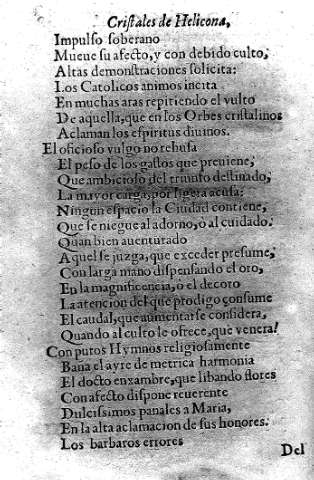 Cristales de Helicona,
Impulso soberano
Mueue su afecto, y con debido culto,
Altas demonstraciones solicita:
Los Catolicos animos incita
En muchas aras repitiendo el vulto
De aquella, que en los Orbes cristalinos
Aclaman los espiritus diuinos.
El oficioso vulgo no rehusa
El peso de los gastos que preuiene,
Que ambicioso del triunfo destinado,
La mayor carga, por ligera acusa:
Ningun espacio la Ciudad contiene,
Que se niegue al adorno, ò al cuidado.
Quan bien auenturado
Aquel se juzga, que exceder presume,
Con larga mano dispensando el oro,
En la magnificencia, ò el decoro
La atencion del que prodigo consume
El caudal, que aumentarse considera,
Quando al culto le ofrece, que venera!
Con puros Hymnos religiosamente
Baña el ayre de metrica harmonia
El docto enxambre, que libando flores
Con afecto dispone reuerente
Dulcissimos panales a Maria,
En la alta aclamacion de sus honores.
Los barbaros errores
Del